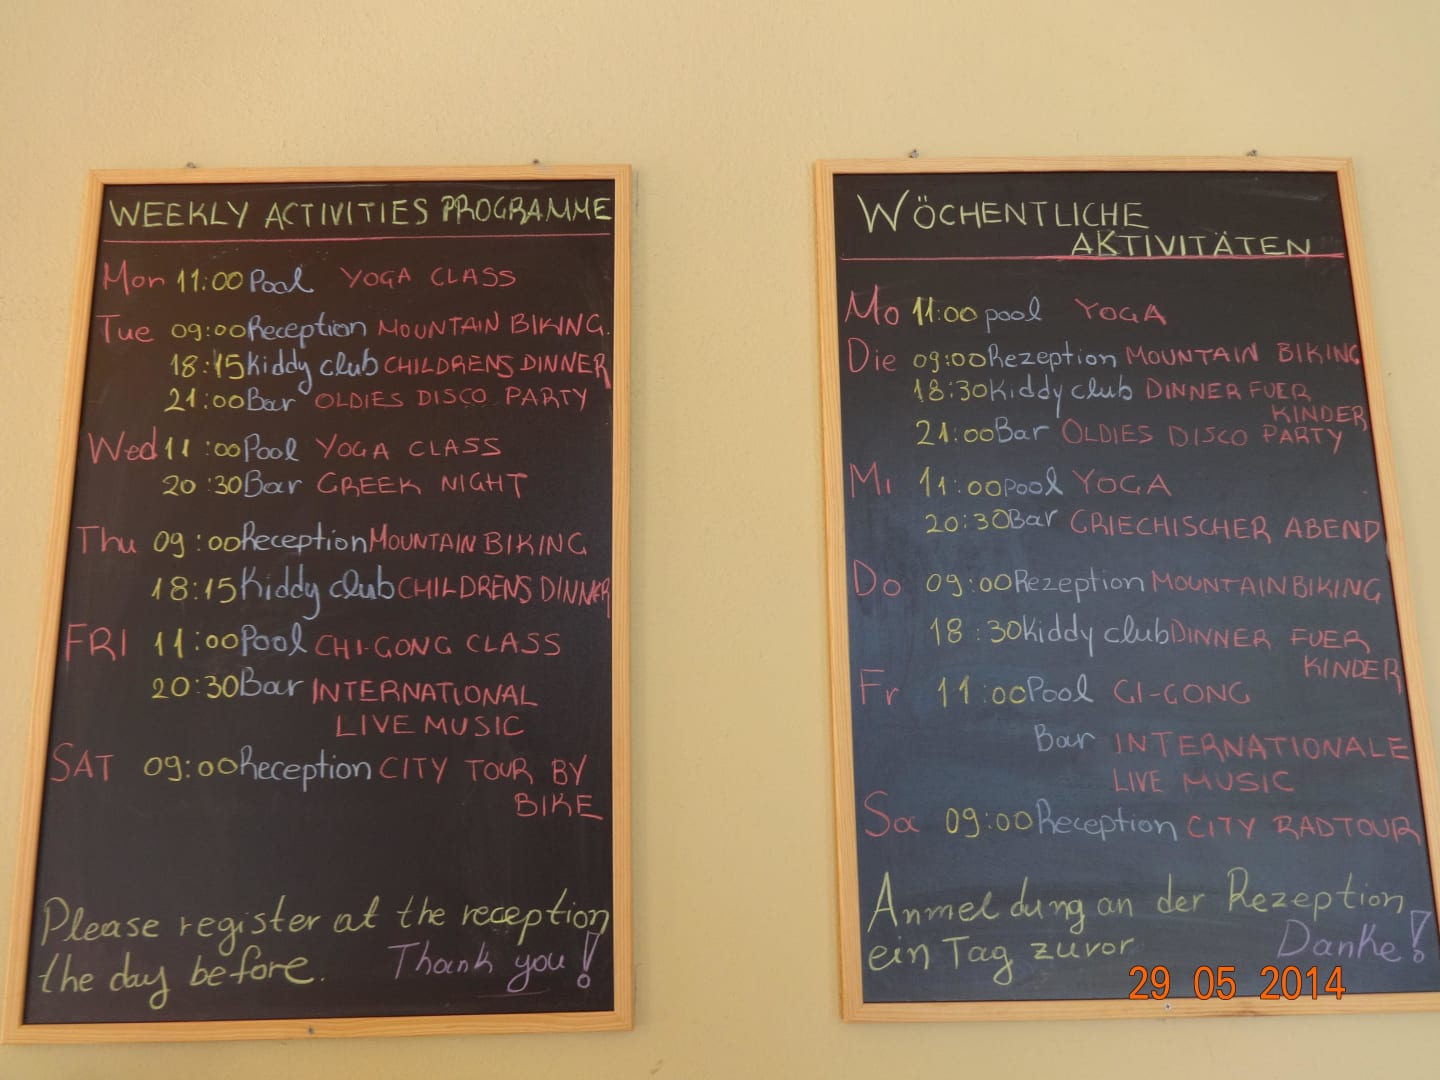 WEEKLY ACTIVITIES PROGRAMME
Mon 11:00 Pool YOGA CLASS
Tue 09:00 Reception MOUNTAIN BIKING.
18:15 Kiddy club CHILDRENS DINNER
21:00 Bar OLDIES DISCO PARTY
Wed 11:00 Pool YOGA CLASS
20:30 Bar GREEK NIGHT
Thu 09:00 Reception MOUNTAIN BIKING
18:15 Kiddy club CHILDRENS DINNER
FRI 11:00 Pool CHI-GONG CLASS
20:30 Bar INTERNATIONAL
LIVE MUSIC
SAT 09:00 Reception CITY TOUR BY
BIKE
Please register at the reception
the day before. Thank you!
WÖCHENTLICHE
AKTIVITÄTEN
Mo 11:00 pool YOGA
Die 09:00 Rezeption MOUNTAIN BIKING
18:30 Kiddy club DINNER FUER
KINDER
21:00 Bar OLDIES DISCO PARTY
Mi 11:00 pool YOGA
20:30 Bar GRIECHISCHER ABEND
Do 09:00 Rezeption MOUNTAIN BIKING
18:30 Kiddy club DINNER FUER
KINDER
Fr 11:00 Pool GI-GONG
Bar INTERNATIONALE
LIVE MUSIC
Sa 09:00 Reception CITY RADTOUR
Anmeldung an der Rezeption
ein Tag zuvor Danke!
29 05 2014